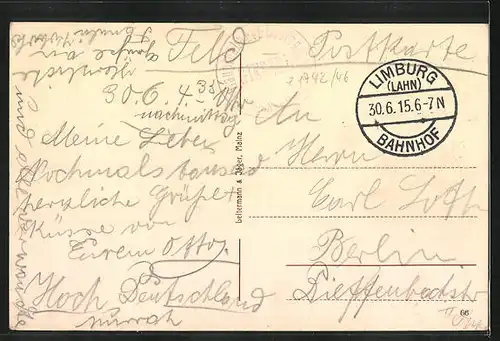 Feld - Postkarte
30.6. 4.35 Uhr
nachmittag
Meine Lieben
Nochmals tausend
herzliche Grüße +
Küsse von
Eurem Otto.
Hoch Deutschland
hurrah
Herzliche
Grüße an
und
Dellermann & Jäger, Mainz
LIMBURG
(LAHN)
30.6.15.6-7N
BAHNHOF
An
Herrn
Carl
Berlin
Dieffenbachstr
66